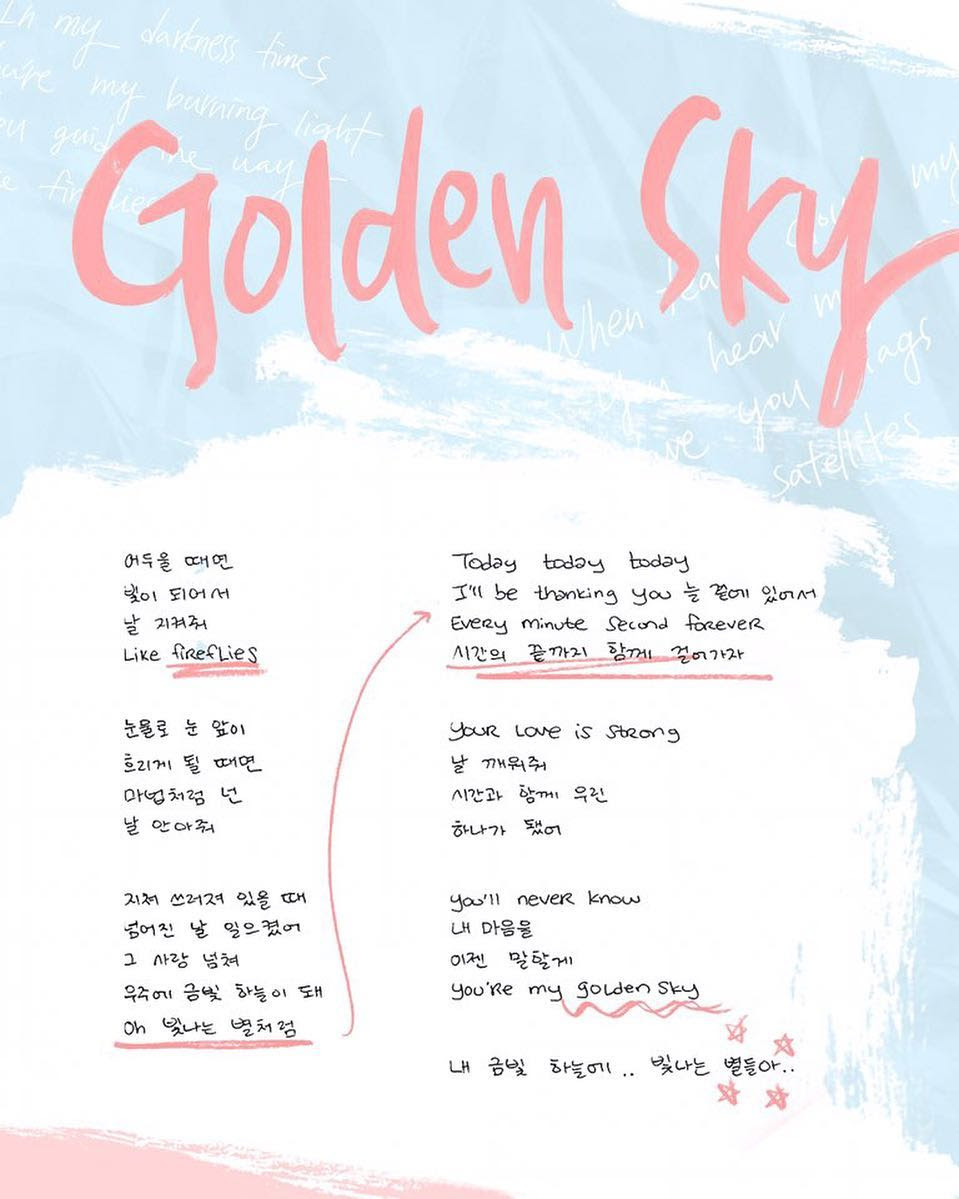 In my darkness times
you're my burning light
you guide the way
fireflies
Golden Sky
my
When tea
hear
you
satellites
어두울 때면
빛이 되어서
날 지켜줘
Like fireflies
눈물로 눈 앞이
흐리게 될 때면
마법처럼 넌
날 안아줘
지쳐 쓰러져 있을 때
넘어진 날 일으켰어
그 사랑 넘쳐
우주에 금빛 하늘이 돼
Oh 빛나는 별처럼
Today today today
I'll be thanking you 늘 곁에 있어서
Every minute second forever
시간의 끝까지 함께 걸어가자
your love is strong
날 깨워줘
시간과 함께 우린
하나가 됐어
you'll never know
내 마음을
이젠 말할게
you're my golden sky
내 금빛 하늘에.. 빛나는 별들아..